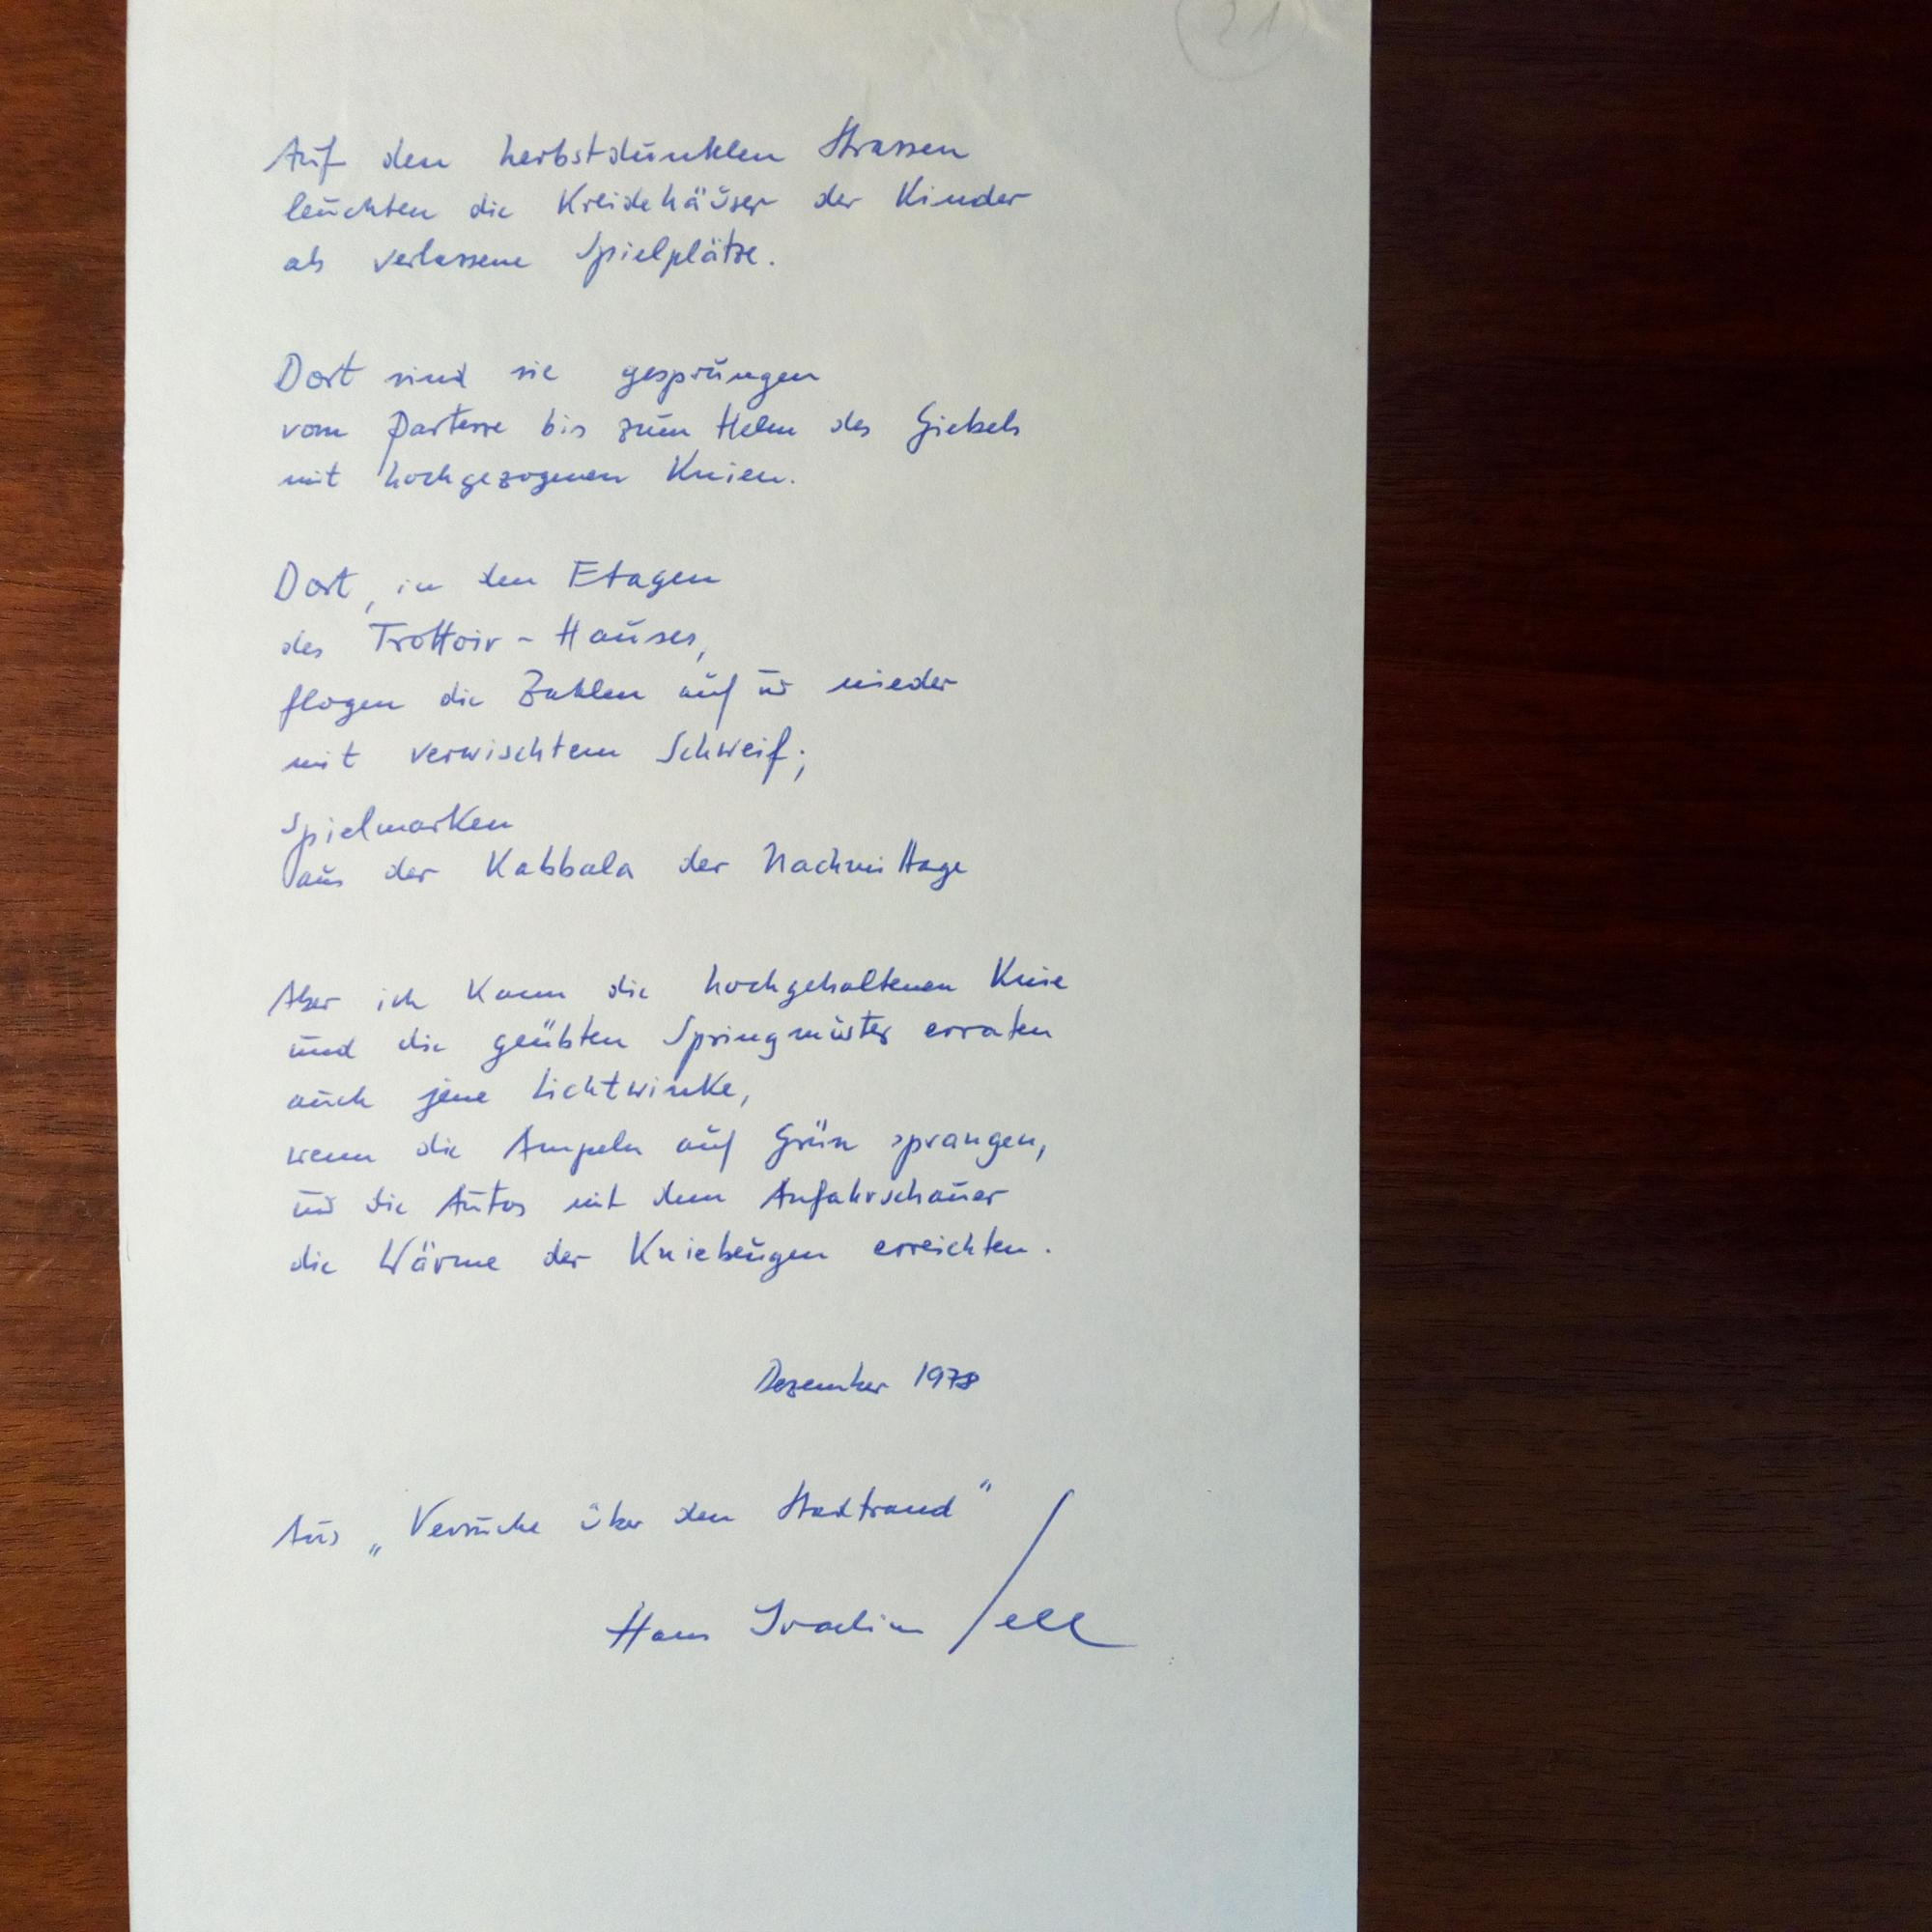 21
Auf den herbstdunklen Strassen
leuchten die Kreidehäuser der Kinder
als verlassene Spielplätze.
Dort sind sie gesprungen
vom Parterre bis zum Helm des Giebels
mit hochgezogenen Knien.
Dort, in den Etagen
des Trottoir-Hauses,
flogen die Zahlen auf u nieder
mit verwischtem Schweif;
Spielmarken
aus der Kabbala der Nachmittage
Aber ich kann die hochgehaltenen Knie
und die geübten Springmuster erraten
auch jene Lichtwinke,
wenn die Ampeln auf Grün sprangen,
u die Autos mit dem Anfahrschauer
die Wärme der Kniebeugen erreichten.
Dezember 1978
Aus „Versuche über den Stadtrand"
Hans Joachim Sell